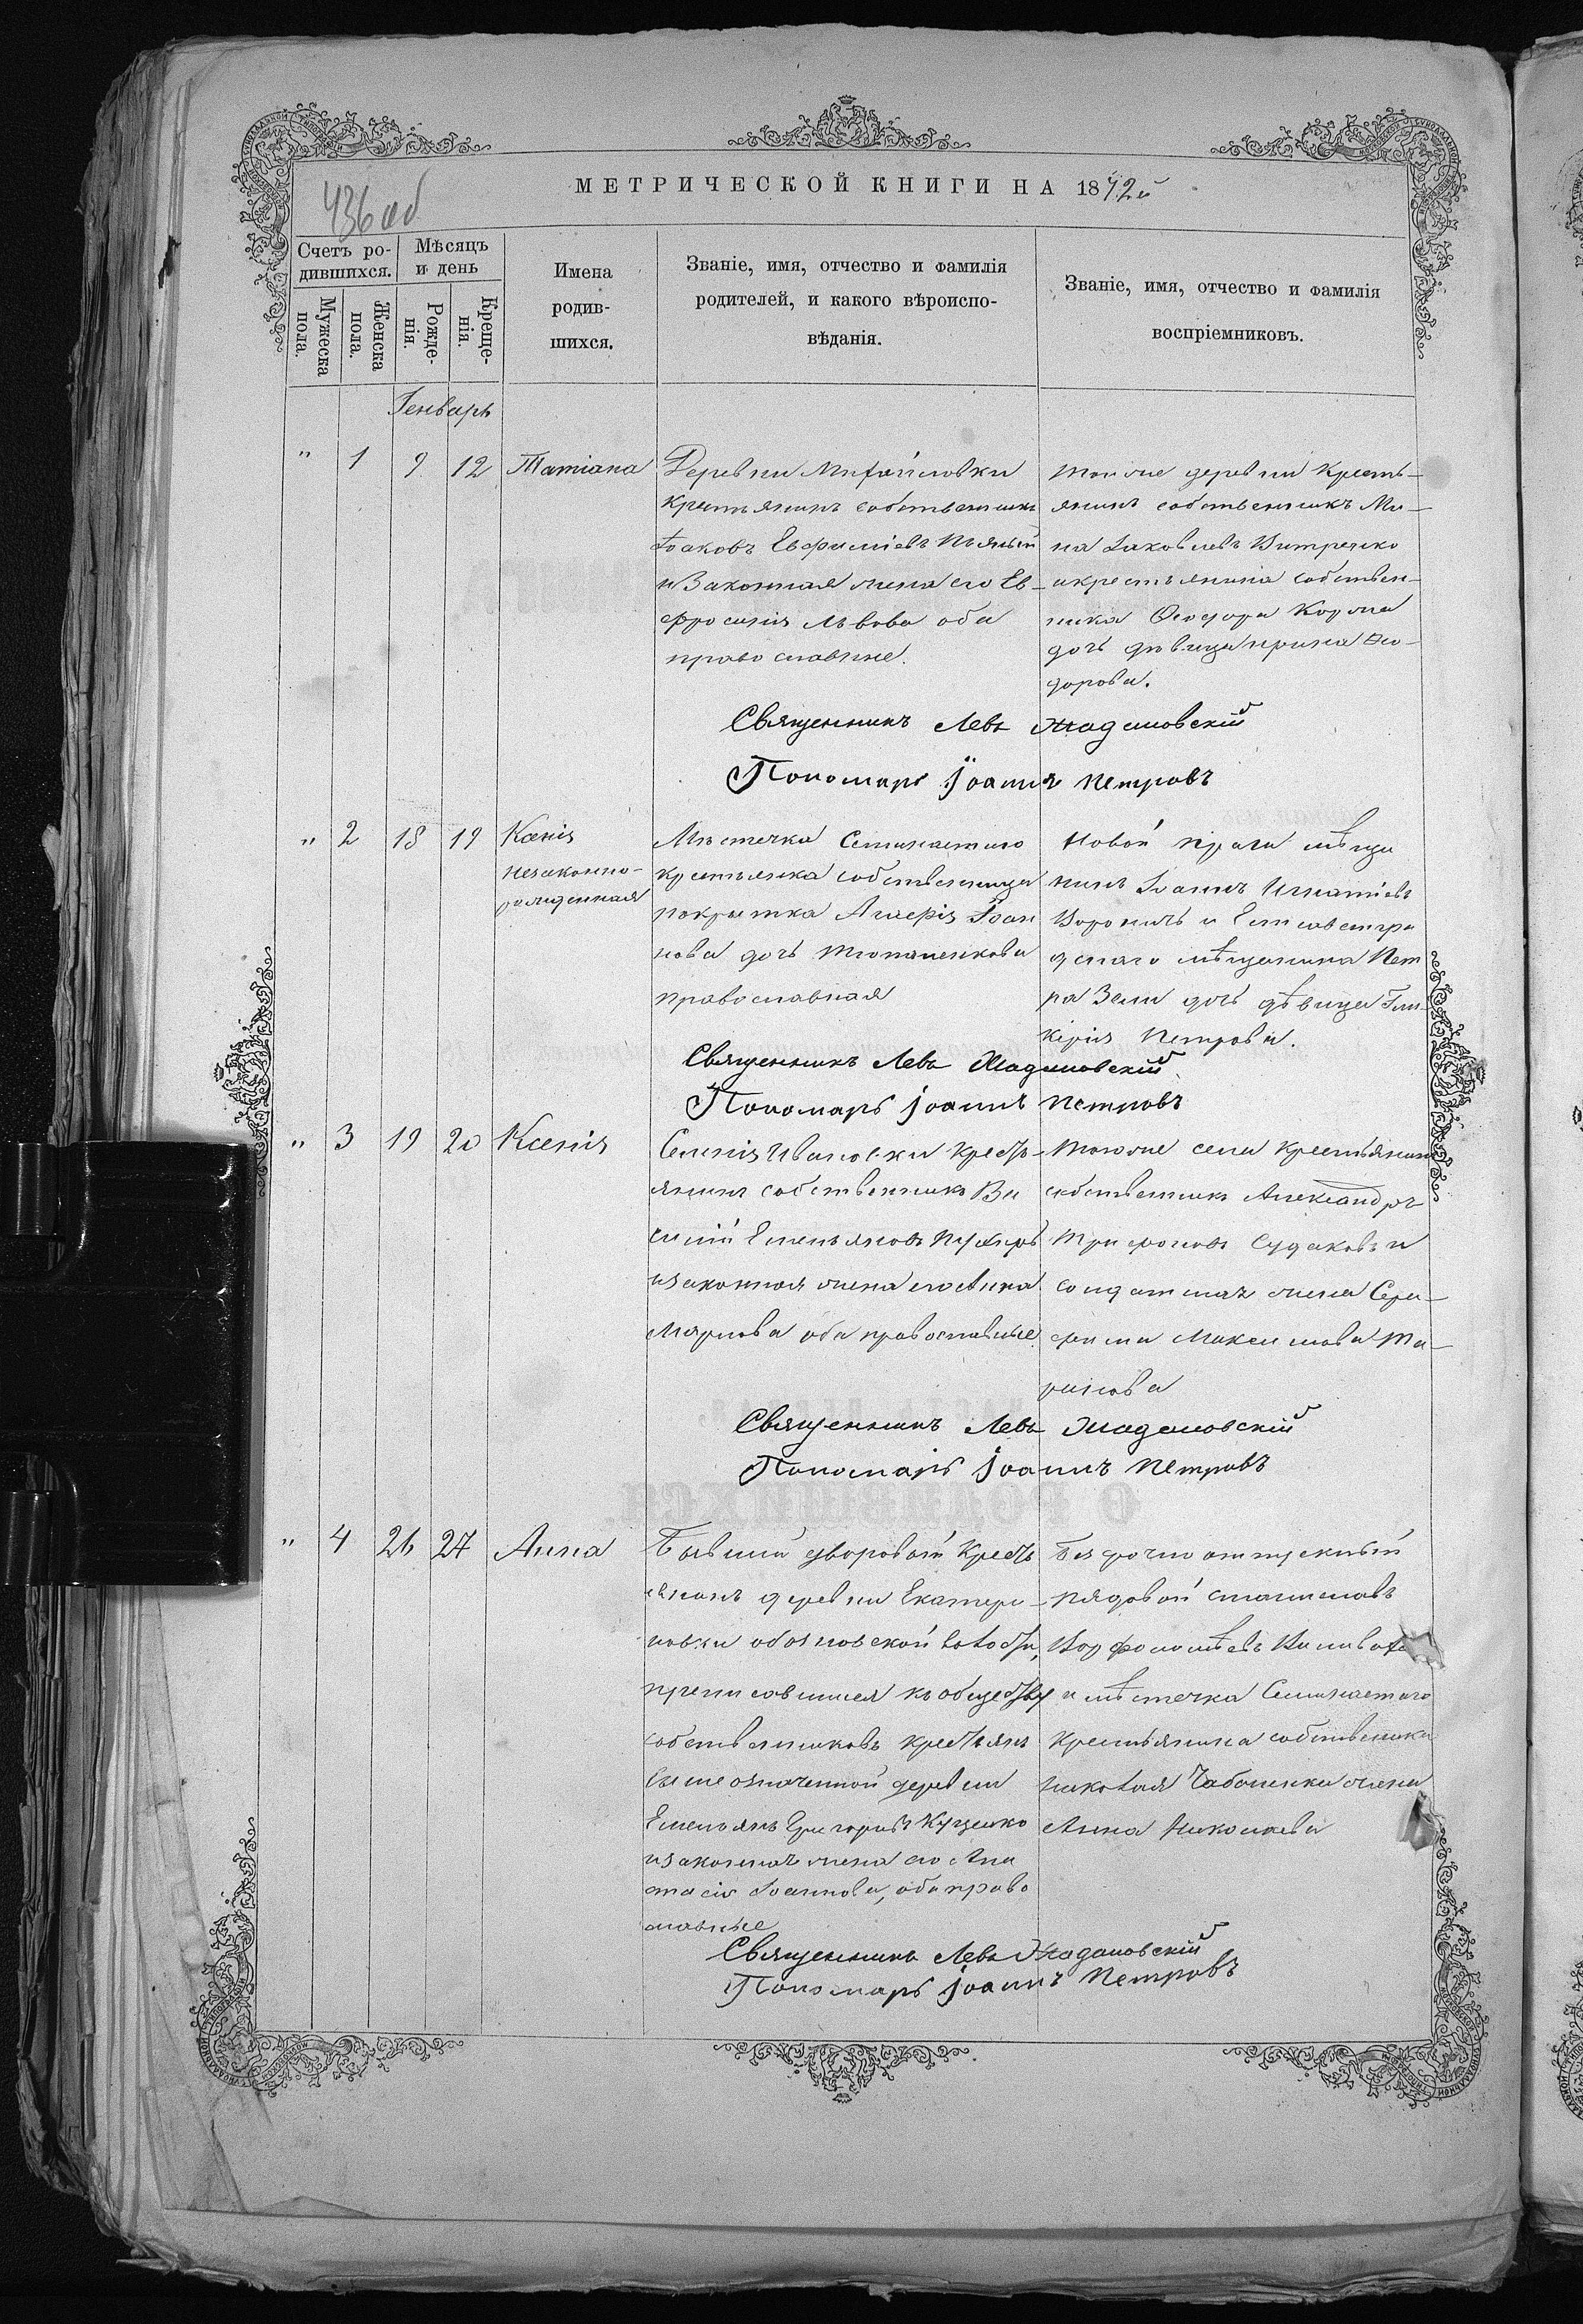 436 об
МЕТРИЧЕСКОЙ КНИГИ НА 1872й
Счетъ ро-
дившихся.
Мѣсяцъ
и день
Мужеска
пола.
Женска
пола.
Рожде-
нія.
Креще-
нія.
Имена
родив-
шихся.
Званіе, имя, отчество и фамилія
родителей, и какого вѣроиспо-
вѣданія.
Званіе, имя, отчество и фамилія
воспріемниковъ.
Генварь
" 1 9 12 Татіана
Деревни Михайловки
крестьянинъ собственникъ
Іоаковъ Евфиміевъ
и Законная жена его Ев-
фросинія Львова оба
православные.
той же деревни Кресть-
янинъ собственникъ Ми-
на Іаковлевъ
и крестьянина собствен-
ника Ѳеодора Коржа
дочь дѣвица Ирина Ѳео-
дорова.
Священникъ Левъ Жадановскій
Пономарь Іоаннъ Петровъ
" 2 18 19 Ксенія
незаконно-
рожденная
Мѣстечка Семинастаго
крестьянка собственница
покрытка Агафія Іоан
нова дочь
православная
Новой Праги мѣща
нинъ Іоаннъ Игнатіевъ
и Елисаветгра
дскаго мѣщанина Пет
ра дочь дѣвица Гли-
керія Петрова.
Священникъ Левъ Жадановскій
Пономарь Іоаннъ Петровъ
" 3 19 20 Ксенія
Селенія Ивановки Крест-
янинъ собственникъ Ва
силій Емельяновъ Пухиръ
и законная жена его Анна
Маркова оба православные.
Того же села Крестьянинъ
собственникъ Александръ
Трифоновъ Судаковъ и
солдатская жена Сера-
фима Максимова Та-
ранова
Священникъ Левъ Жадановскій
Пономарь Іоаннъ Петровъ
" 4 26 27 Анна
Бывшій дворовый Кресть
янинъ деревни Екатери-
новки волости,
приписавшійся къ обществу
собственниковъ крестьянъ
вышеозначенной деревни
Емельянъ Григорьевъ Куценко
и законная жена его Ана
стасія Іоаннова, оба право
славные
Безсрочно отпускный
рядовой Станиславъ
Варфоломѣевъ
и мѣстечка Семинастаго
крестьянина собственника
Николая Чабаненка жена
Анна Николаева
Священникъ Левъ Жадановскій
Пономарь Іоаннъ Петровъ